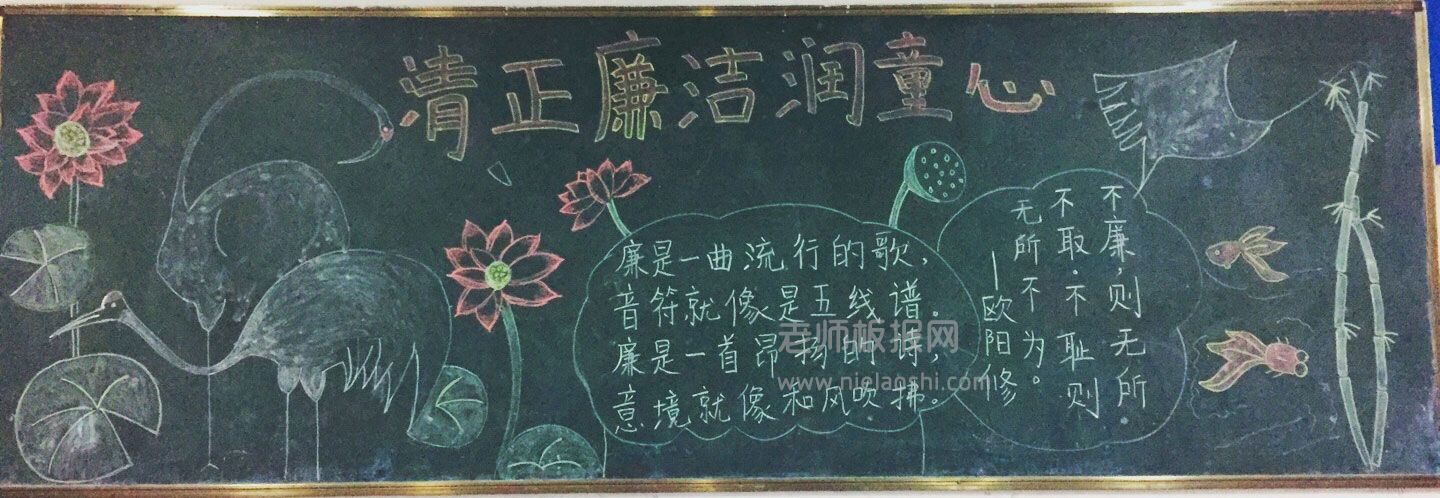 清正廉洁润童心
廉是一曲流行的歌，
音符就像是五线谱。
廉是一首昂扬的诗，
意境就像和风吹拂。
不廉，则无所
不取·不耻则
无所不为。
—欧阳修
老师板报网
www.nielaoshi.com